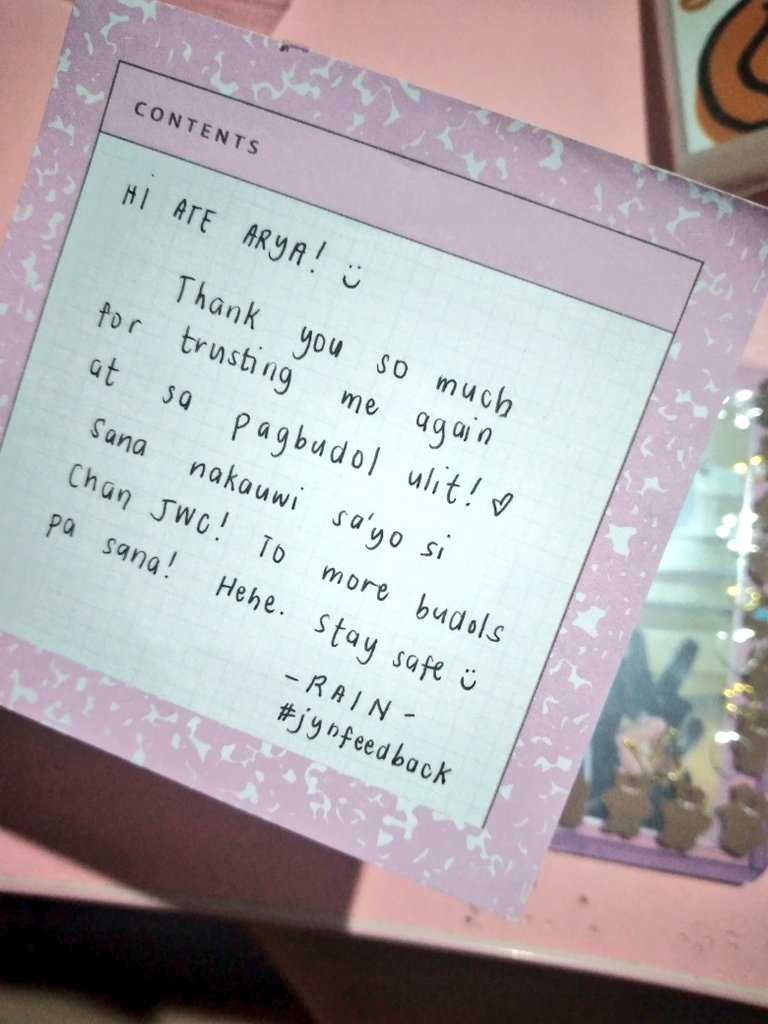 CONTENTS
HI ATE ARYA! ツ
Thank you so much
for trusting me again
at sa pagbudol ulit! ♡
Sana nakauwi sa'yo si
Chan JWC! To more budols
pa sana! Hehe. Stay safe ツ
-RAIN-
#jynfeedback